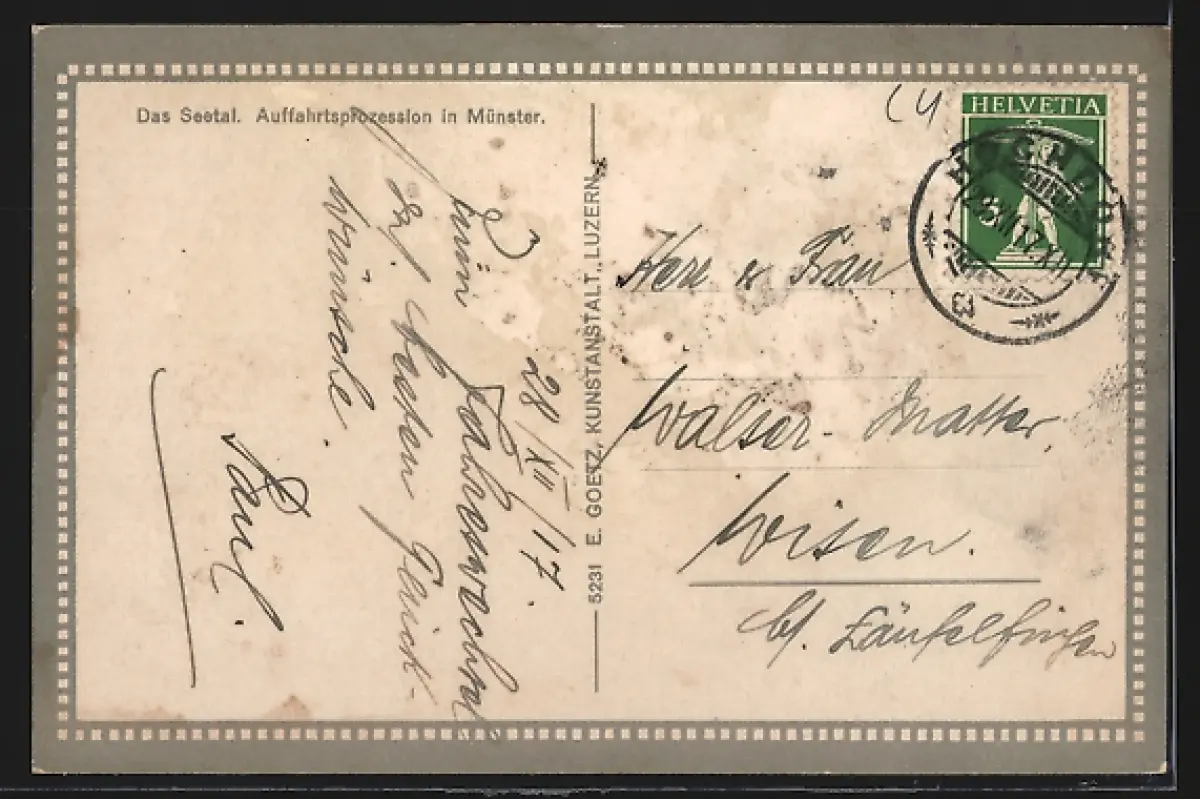 Das Seetal. Auffahrtsprozession in Münster.
28/XII 17.
Zum Jahreswechsel
die besten Glück-
wünsche.
Paul.
5231 E. GOETZ, KUNSTANSTALT, LUZERN
HELVETIA
5
HOCHDORF
Herr & Frau
Walser-Matter,
Wisen.
b/ Läufelfingen